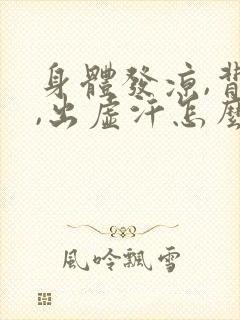 身體發凉,背
,出虛汗怎麼
風吟飄雪